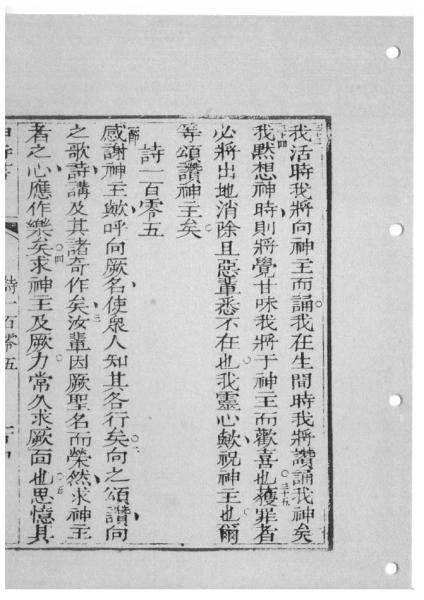 三十三
我活時我將向神主而誦我在生間時我將讚誦我神矣
三十四
我黙想神時則將覺甘味我將于神主而歡喜也獲罪者
三十五
必將出地消除且惡輩悉不在也我靈心歟祝神主也爾
等頌讚神主矣
詩一百零五
感謝神主歟呼向厥名使衆人知其各行矣向之頌讚向
二
之歌詩講及其諸竒作矣汝輩因厥聖名而榮然求神主
三
者之心應作樂矣求神主及厥力常久求厥面也思憶其
四
五
詩一百零五